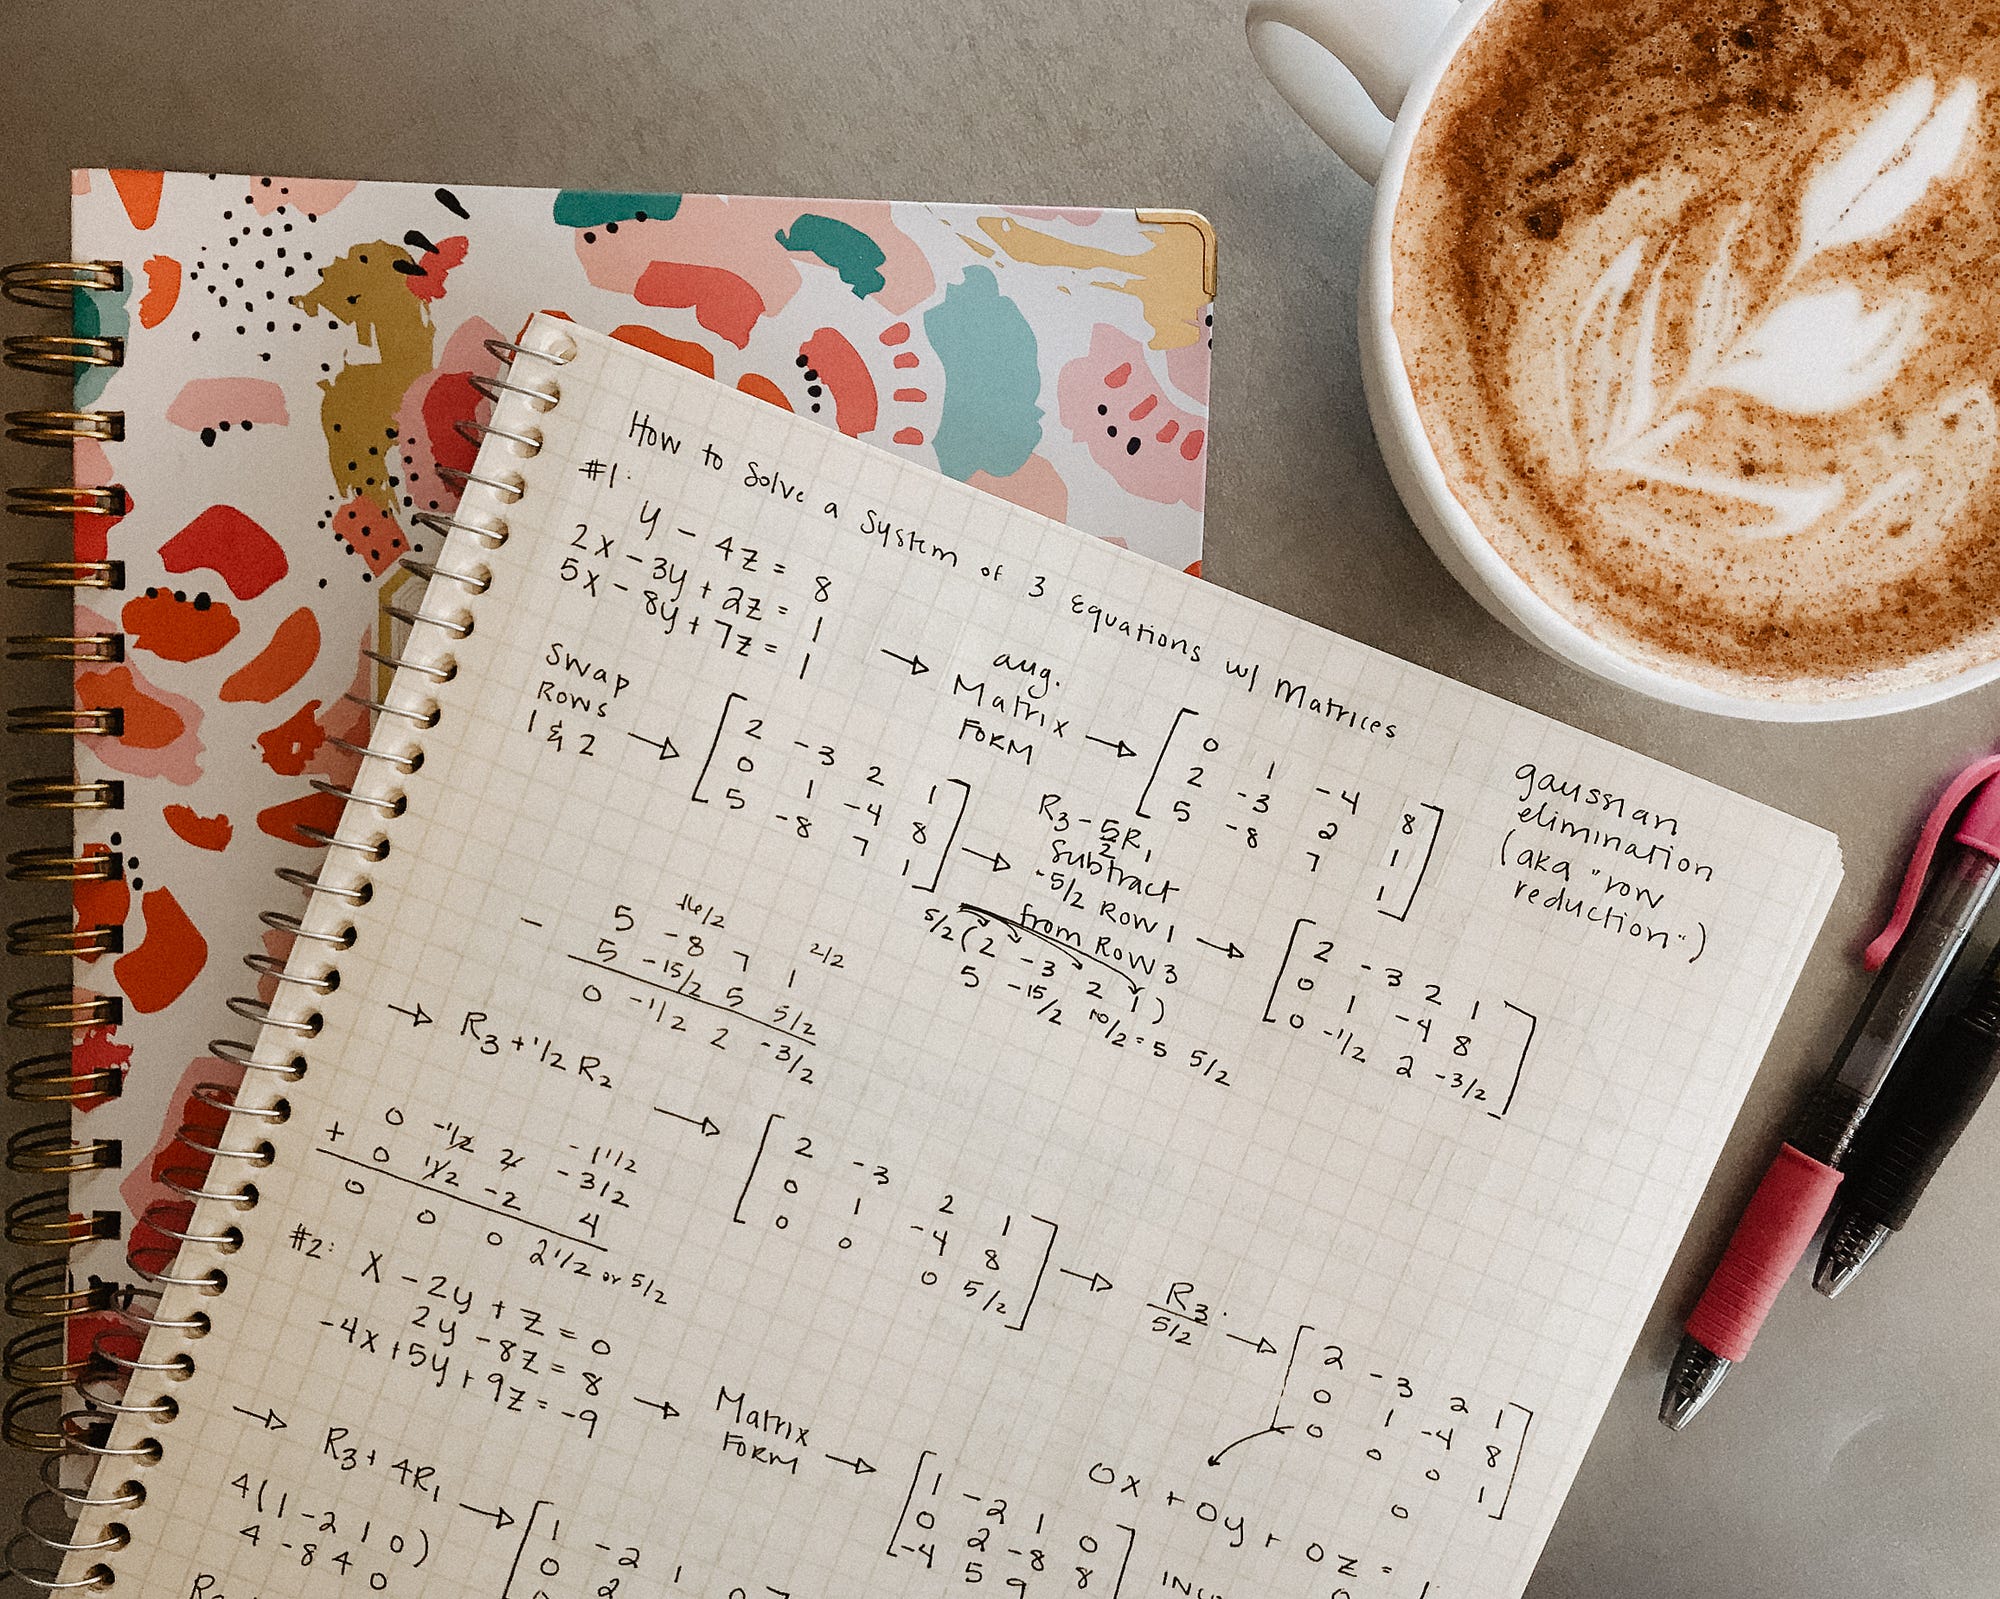 How to Solve a System of 3 Equations w/ Matrices
#1:
y - 4z = 8
2x - 3y + 2z = 1
5x - 8y + 7z = 1
→ aug.
Matrix
FORM →
[ 0 1 -4 8
2 -3 2 1
5 -8 7 1 ]
gaussian
elimination
(aka "row
reduction")
Swap
Rows
1 & 2 →
[ 2 -3 2 1
0 1 -4 8
5 -8 7 1 ]
→ R3 - 5/2 R1
Subtract
-5/2 Row 1
from Row 3 →
5/2 ( 2 -3 2 1 )
5 -15/2 10/2 = 5 5/2
[ 2 -3 2 1
0 1 -4 8
0 -1/2 2 -3/2 ]
2/2
5 -8 7 1
- 5 -15/2 5 5/2
0 -1/2 2 -3/2
→ R3 + 1/2 R2 →
-1 1/2
0 -1/2 2 -3/2
+ 0 1/2 -2 4
0 0 0 2 1/2 or 5/2
[ 2 -3 2 1
0 1 -4 8
0 0 0 5/2 ]
→ R3
5/2 →
[ 2 -3 2 1
0 1 -4 8
0 0 0 1 ]
0x + 0y + 0z = 1
#2: x - 2y + z = 0
2y - 8z = 8
-4x + 5y + 9z = -9
→ Matrix
FORM →
[ 1 -2 1 0
0 2 -8 8
-4 5 9
→ R3 + 4R1 →
4 ( 1 -2 1 0 )
4 -8 4 0
[ 1 -2 1 0
0 2